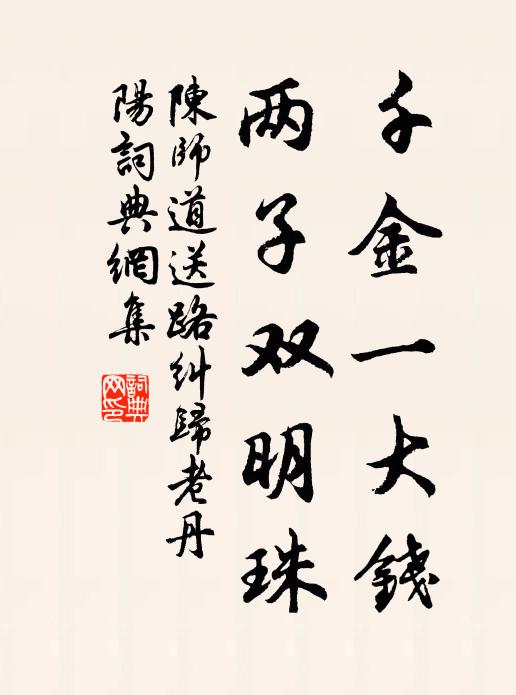 千金一大錢
两子双明珠
陳師道送路糾歸老丹
陽詞典網集
詞典
网印